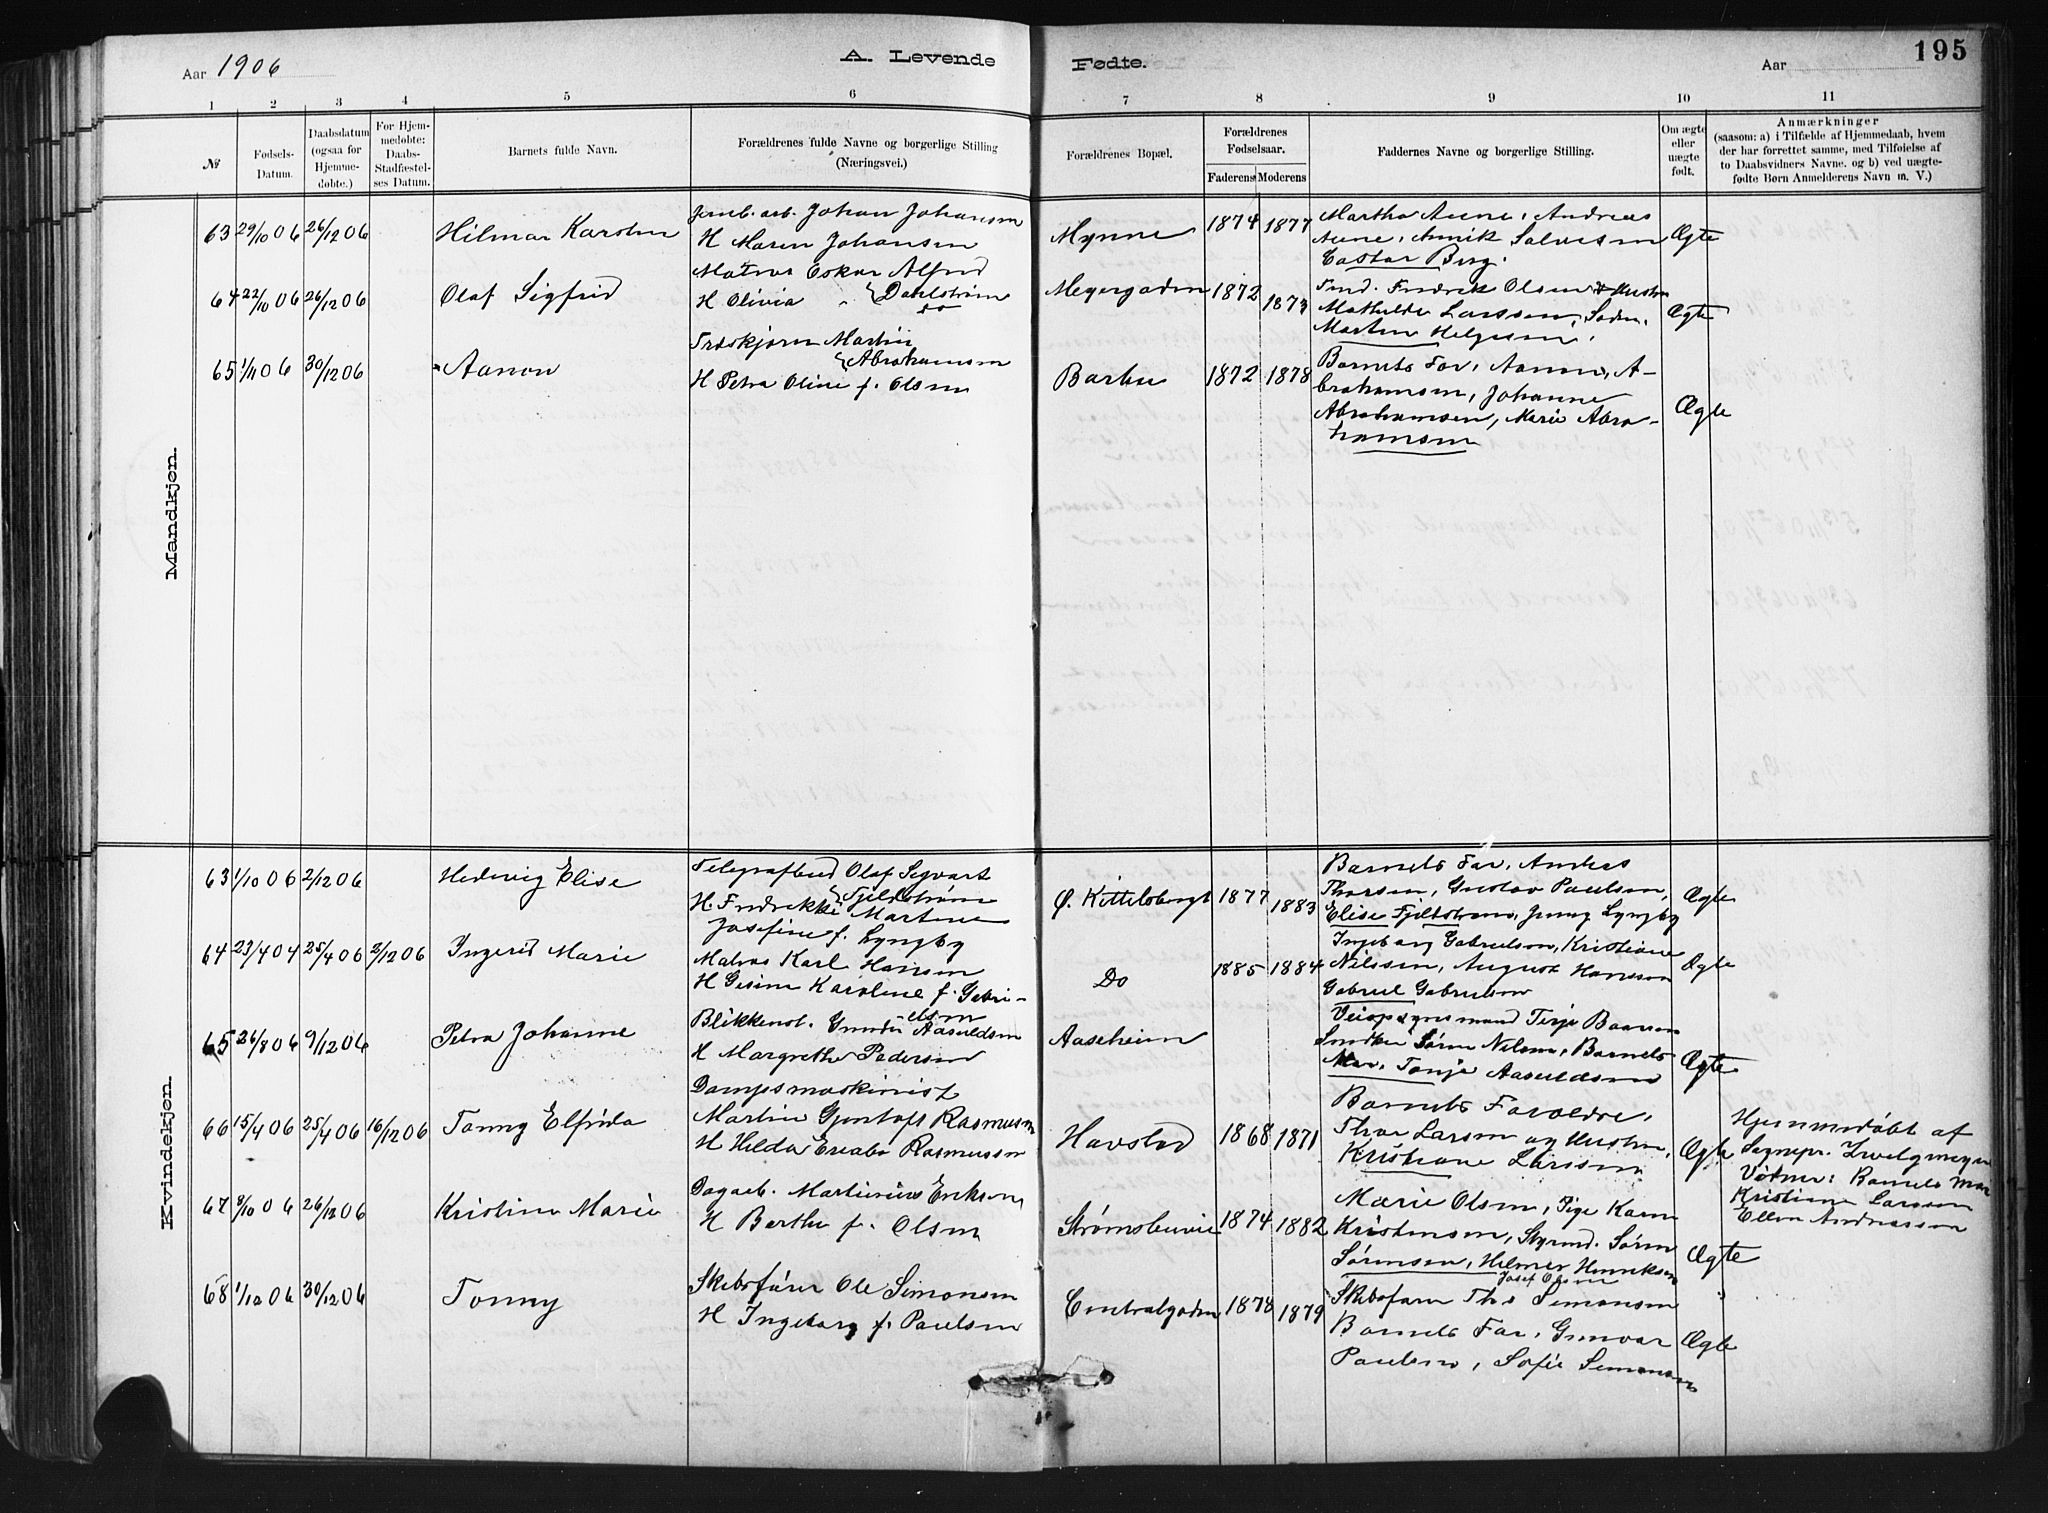 Aar 1906
A. Levende Fødte.
Aar
195
1 2 3 4 5 6 7 8 9 10 11
№
Fødsels-Datum.
Daabsdatum (ogsaa for Hjemmedøbte.)
For Hjemmedøbte: Daabs-Stadfæstelses Datum.
Barnets fulde Navn.
Forældrenes fulde Navne og borgerlige Stilling (Næringsvei.)
Forældrenes Bopæl.
Forældrenes Fødselsaar.
Faderens Moderens
Faddernes Navne og borgerlige Stilling.
Om ægte eller uægte født.
Anmærkninger
(saasom: a) i Tilfælde af Hjemmedaab, hvem
der har forrettet samme, med Tilføielse af
to Daabsvidners Navne. og b) ved uægte-
fødte Børn Anmelderens Navn m. V.)
Mandkjøn.
63 29/10 06 26/12 06 Hilmar Karsten
Jernb. arb. Johan Johansen
H Maren Johansen
Mynne 1874 1877
Martha Aune, Andreas
Aune, Salvesen
Berg.
Ægte
64 22/10 06 26/12 06 Olaf Sigfred
Matros Oskar Alfred
H Olivia " Dahlstrøm
Meyergaden 1872 1873
Fredrik Olsen Hustru
Mathilde Larssen,
Martin Helgesen,
Ægte
65 1/11 06 30/12 06 Aanon
Træskjærer Martin
Abrahamsen
H Petra Oline f. Olsen
Barbu 1872 1878
Barnets Far, Aanon A-
brahamsen, Johanne
Abrahamsen, Marie Abra-
hamsen
Ægte
Kvindekjøn.
63 1/10 06 2/12 06 Hedevig Elise
Telegrafbud Olaf Sigvart
Fjeldstrøm
H. Fredrikke Martine
Josefine f. Lyngby
Ø. Kittelsbugt 1877 1883
Barnets Far, Anders
Thorsen, Gustav Paulsen,
Elise Fjeldstrøm, Jenny Lyngby
Ægte
64 23/4 04 25/4 06 2/12 06 Ingerid Marie
Matros Karl Hansen
H Gesine Karoline f. Gabri-
elsen
Do 1885 1884
Ingeborg Gabrielsen, Kristiane
Nilssen, August Hansson
Gabriel Gabrielsen
Ægte
65 26/8 06 9/12 06 Petra Johanne
Blikkensl. Gunder Aasuldsen
H Margrethe Pedersen
Aaseheim
Veiopsynsmand Terje Baarsen
Søren Nilsen, Barnets
Mor, Tonje Aasuldsen
Ægte
66 15/4 06 25/4 06 16/12 06 Tonny Elfrida
Dampsmaskinist
Martin Gjentoft Rasmussen
H Hilda Rasmussen
Havstad 1868 1871
Barnets Forældre,
Thor Larsen og Hustru,
Kristiane Larssen
Ægte
Hjemmedøbt af
Sognepr. Zwelgmeyer
Vidner: Barnets Mor
Kristiane Larssen
Ellen Andreassen
67 8/10 06 26/12 06 Kristine Marie
Dagarb. Martinius Eriksen
H Berthe f. Olsen
Strømsbuvei 1874 1882
Marie Olsen, Pige Karen
Kristensen, Styrmd. Søren
Sørensen, Helmer Henriksen
Josef Olsen
Ægte
68 1/10 06 30/12 06 Tonny
Skibsfører Ole Simonsen
H Ingeborg f. Paulsen
Centralgaden 1878 1879
Skibsfører Ths Simonsen
Barnets Far, Gunvor
Paulsen, Sofie Simonsen
Ægte